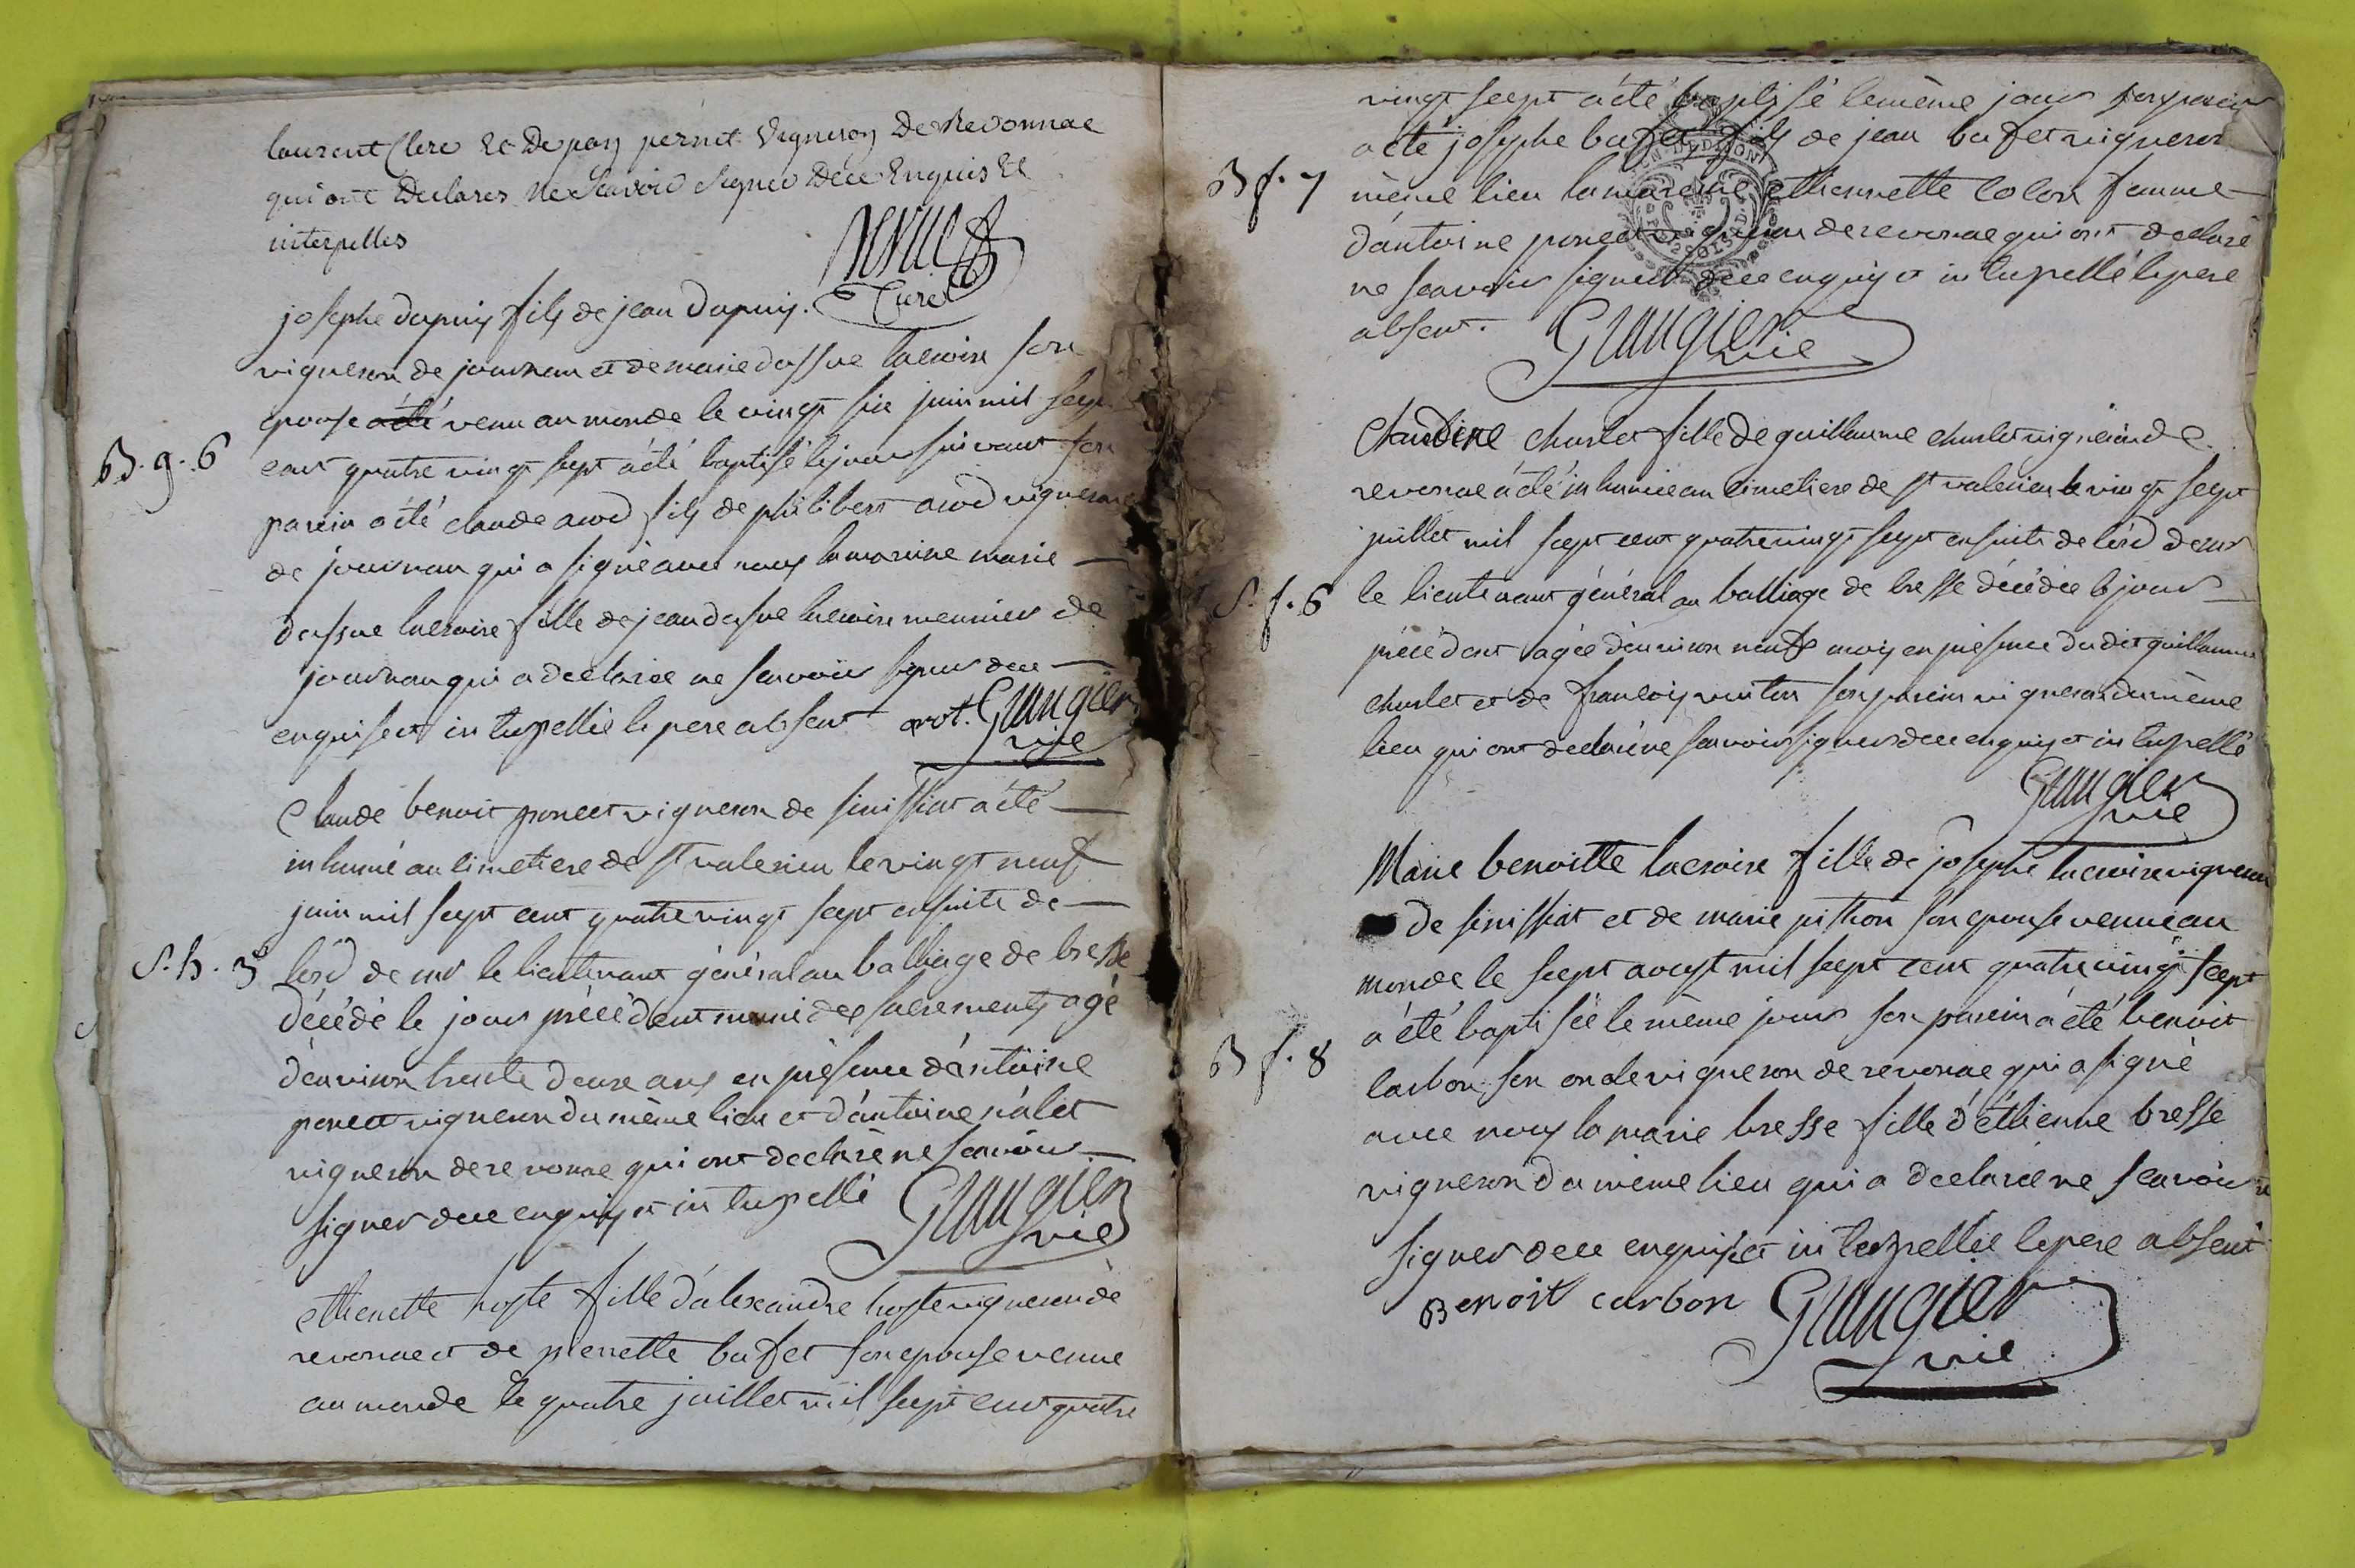 laurent Clerc Et De pay pernet Vigneron De Revonnac
qui ont Declares ne Scavoir Signer Dece Enquis Et
interpelles
Curé
josephe dupuis fils de jean dupuis
vigneron de journan et de marie dassue lacroix son
epouse a été venu au monde le vingt six juin mil sept
B. g. 6
cent quatre vingt sept a été baptisé le jour suivant son
parein a été claude avod fils de philibert avod vigneron
de journan qui a signé avec nous la mareine marie
dassue lacroix fille de jean dassue lacroix meunier de
journan qui a declarée ne scavoir signer dece
enquise et interpellée le pere absent avot. Grangier
vic
Claude benoit poncet vigneron de sinissiat a été
inhumé au cimetiere de st valerien le vingt neuf
juin mil sept cent quatre vingt sept ensuite de
S. h. 3
lord de mr le lieutenant général au balliage de bresse
décédé le jour précédent muni des sacrements agé
d'environ trente deux ans en présence d'antoine
poncet vigneron du même lieu et d'antoine nalet
vigneron de revonac qui ont declaré ne scavoir
signer dece enquis et interpellé Grangier
vic
ethienette hoste fille d'alexandre hoste vigneron de
revonac et de pierrette bufet son epouse venue
au monde le quatre juillet mil sept cent quatre
vingt sept a été baptisé le même jour son parein
a été josephe bufet fils de jean bufet vigneron
B f. 7
même lieu la mareine ethiennette colon femme
d'antoine poncet vigneron de revonac qui ont declaré
ne scavoir signer dece enquis et interpellé le pere
absent. Grangier
vic
Claudine charlet fille de guillaume charlet vigneron de
revonac a été inhumée au cimetiere de st valerien le vingt sept
juillet mil sept cent quatre vingt sept ensuite de lord de mr
S. f. 6
le lieutenant général au balliage de bresse décédée le jour
précédent agée d'environ neuf mois en présence dudit guillaume
charlet et de françois son parein vigneron du même
lieu qui ont declaré ne scavoir signer dece enquis et interpellé
Grangier
vic
Marie benoitte lacroix fille de josephe lacroix vigneron
de sinissiat et de marie pithon son epouse venue au
monde le sept aoust mil sept cent quatre vingt sept
a été baptisée le même jour son parein a été benoit
B f. 8
carbon son oncle vigneron de revonac qui a signé
avec nous la marie bresse fille d'ethienne bresse
vigneron du même lieu qui a declarée ne scavoir
signer dece enquise et interpellée le pere absent
Benoit carbon Grangier
vic